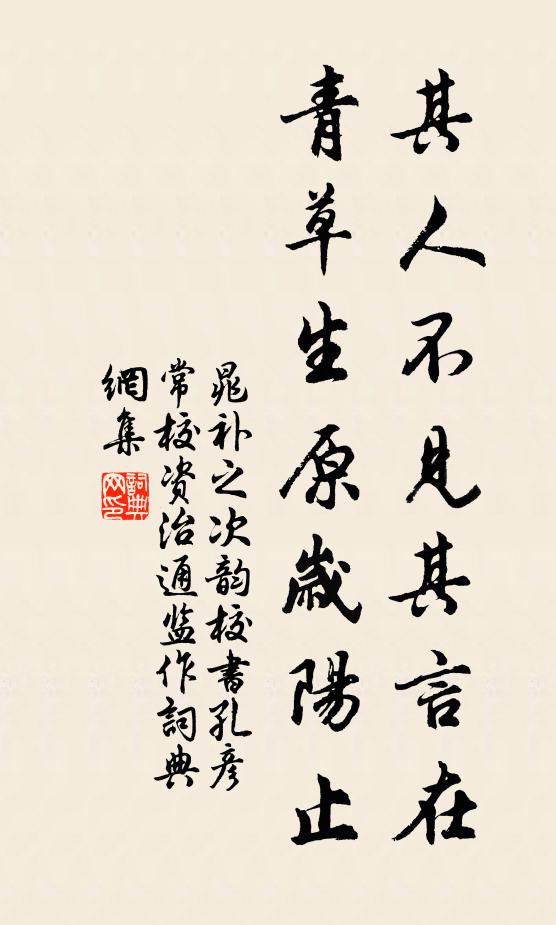 其人不見其言在
青草生原歲陽止
晁补之次韵校書孔彦
常校资治通监作詞典
網集
詞典网印